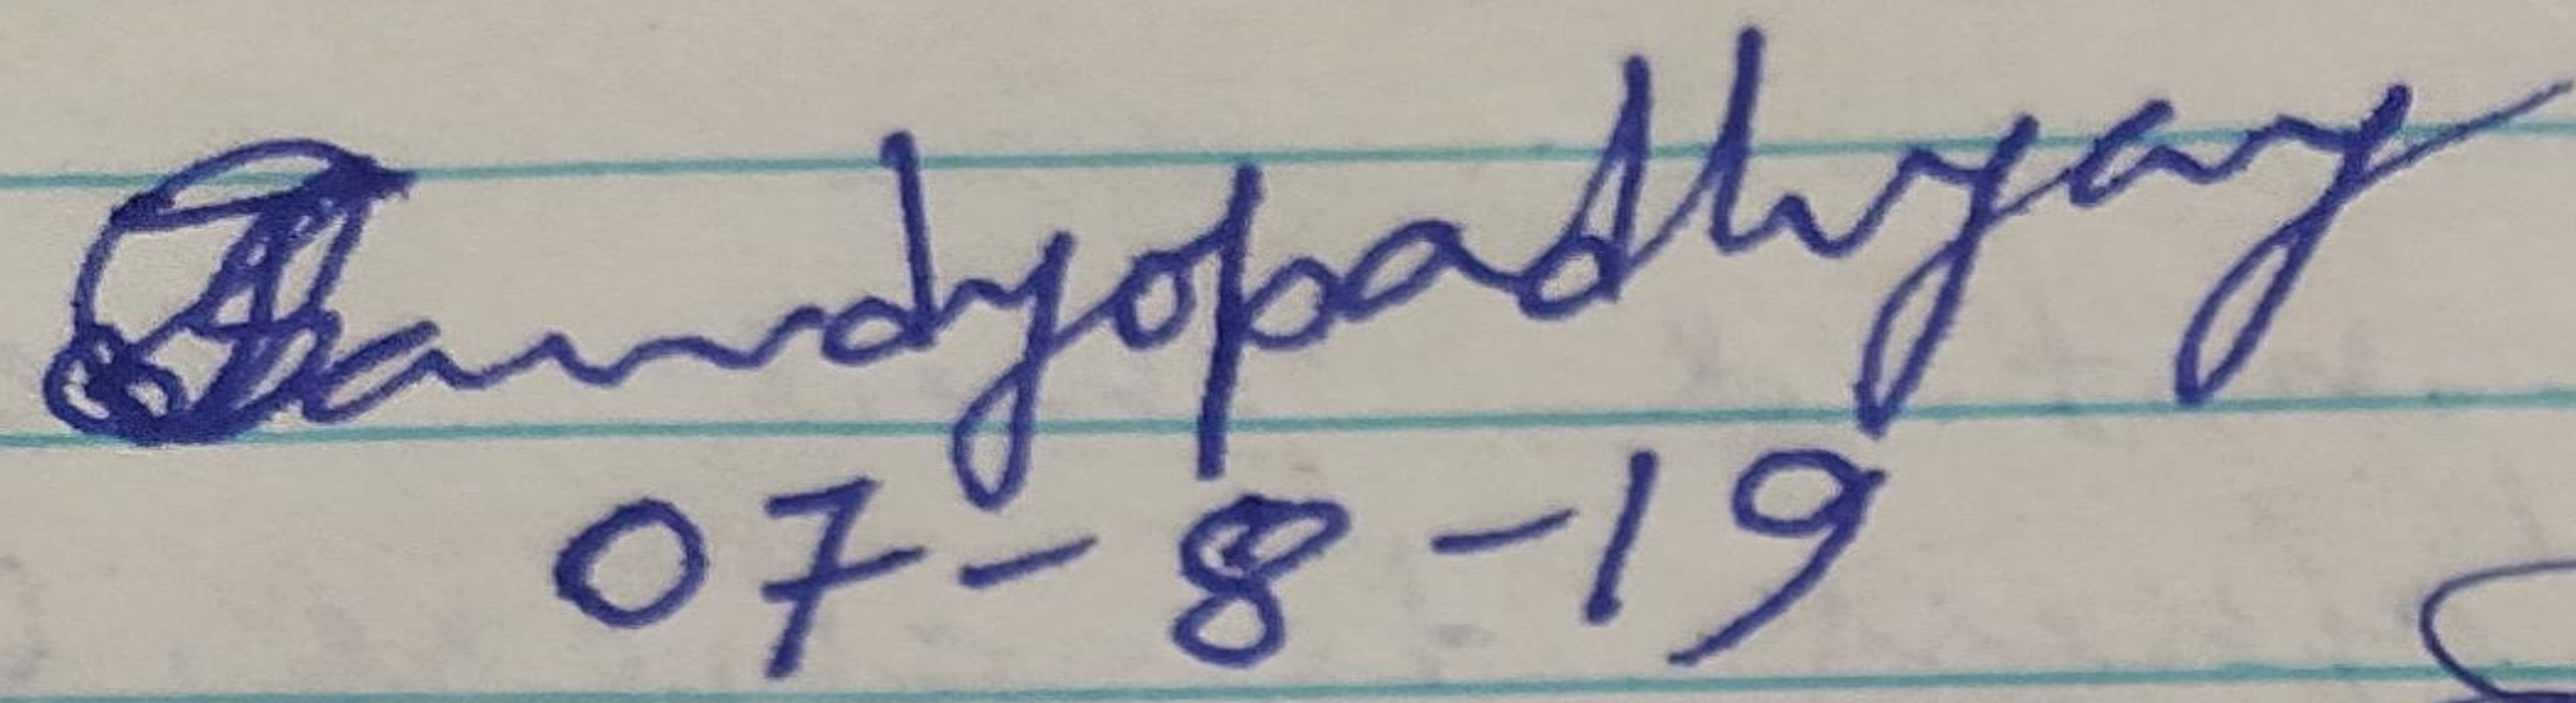 Bandyopadhyay
07-8-19